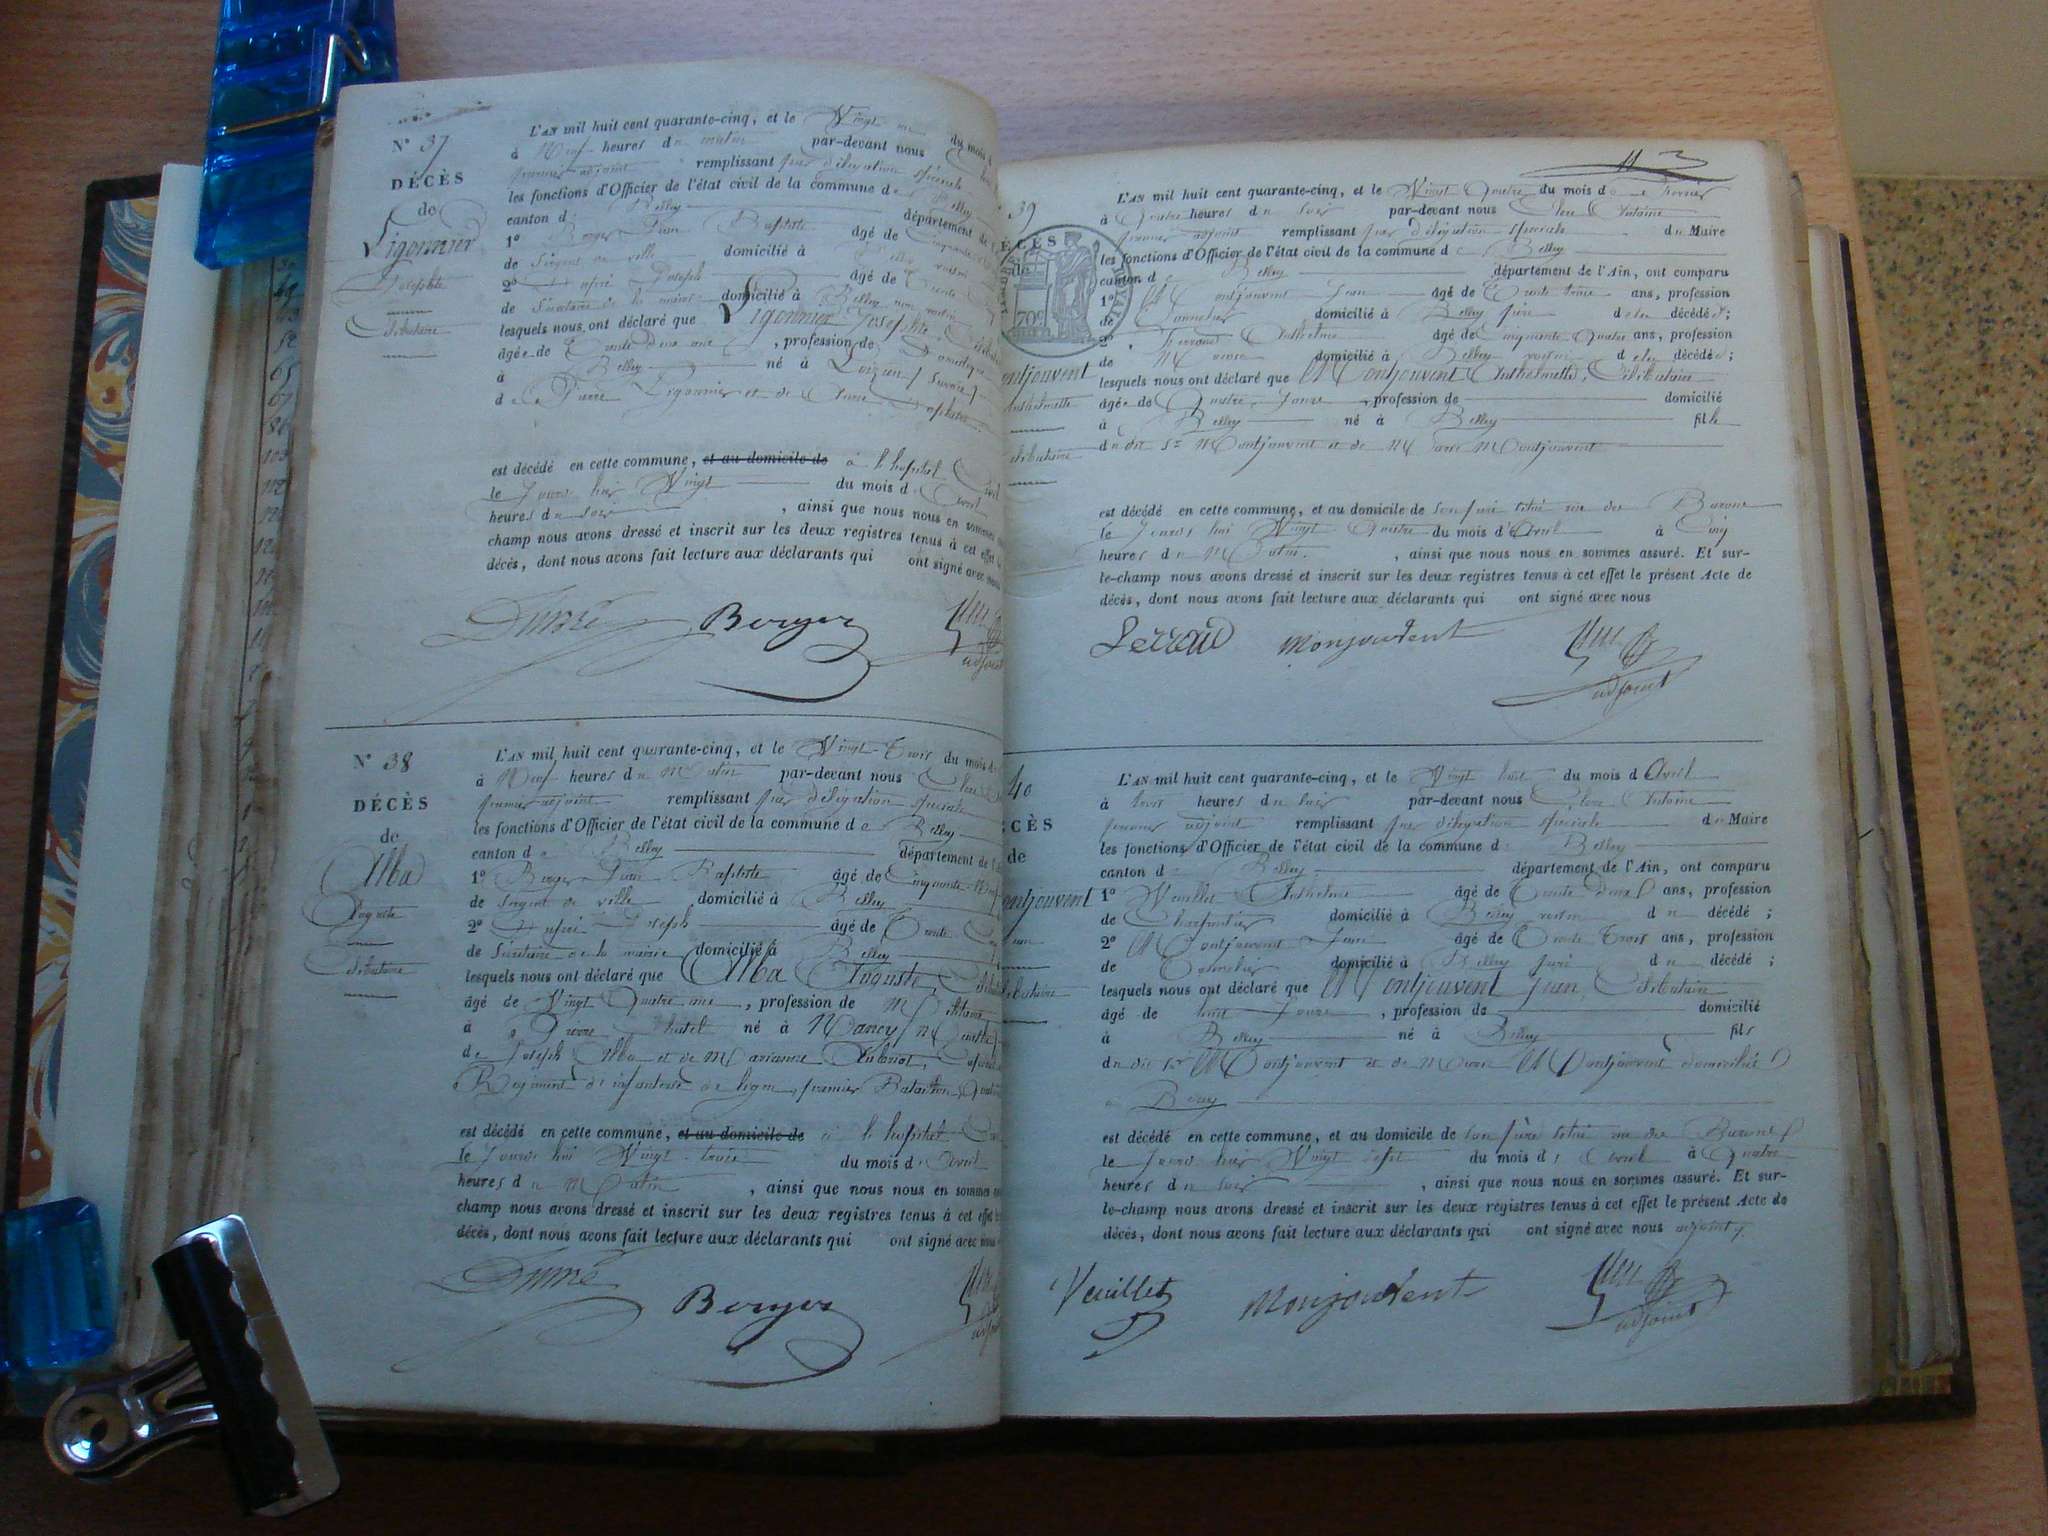 N° 37
DÉCÈS
de
Ligonnier
Josephte
Célibataire
L'AN mil huit cent quarante-cinq, et le Vingt un du mois d
à Neuf heures du matin par-devant nous
premier adjoint remplissant par délégation spéciale
les fonctions d'Officier de l'état civil de la commune de Belley
canton d Belley département de l'
1° Berger Jean Baptiste âgé de Cinquante
de Sergent de ville domicilié à Belley voisin
2° Dupré Joseph âgé de Trente
de Secrétaire de la mairie domicilié à Belley non voisin
lesquels nous ont déclaré que Ligonnier Josephte Célibataire
âgée de Trente deux ans, profession de Domestique
à Belley né à (Savoie)
de Pierre Ligonnier et de
est décédé en cette commune, et au domicile de à l'hopital Civil
le Jours hier Vingt du mois d'Avril
heures du soir, ainsi que nous nous en sommes
champ nous avons dressé et inscrit sur les deux registres tenus à cet effet le
décès, dont nous avons fait lecture aux déclarants qui ont signé avec nous
Dupré Berger
adjoint
N° 38
DÉCÈS
de
Alba
Auguste
Célibataire
L'AN mil huit cent quarante-cinq, et le Vingt Trois du mois d
à Neuf heures du Matin par-devant nous Clerc
premier adjoint remplissant par délégation spéciale
les fonctions d'Officier de l'état civil de la commune de Belley
canton de Belley département de l'
1° Berger Jean Baptiste âgé de Cinquante Neuf
de Sergent de ville domicilié à Belley
2° Dupré Joseph âgé de Trente
de Secrétaire de la mairie domicilié à Belley
lesquels nous ont déclaré que Alba Auguste, Célibataire
âgé de Vingt Quatre ans, profession de Militaire
à Pierre Châtel né à Nancy (Meurthe)
de Joseph Alba et de Marianne
Régiment d'infanterie de ligne, premier Bataillon,
est décédé en cette commune, et au domicile de à l'hopital Civil
le Jours hui Vingt trois du mois d'Avril
heures du Matin, ainsi que nous nous en sommes
champ nous avons dressé et inscrit sur les deux registres tenus à cet effet
décès, dont nous avons fait lecture aux déclarants qui ont signé avec nous
Dupré Berger
39
DÉCÈS
de
ontjouvent
Anthelmette
élibataire
L'AN mil huit cent quarante-cinq, et le Vingt Quatre du mois de Février
à Quatre heures du Soir par-devant nous Clerc Antoine
premier adjoint remplissant par délégation spéciale du Maire
les fonctions d'Officier de l'état civil de la commune de Belley
canton de Belley département de l'Ain, ont comparu
1° Montjouvent Jean âgé de Trente trois ans, profession
de Tonnelier domicilié à Belley père de la décédée;
2° Ferraud Anthelme âgé de Cinquante Quatre ans, profession
de domicilié à Belley voisin de la décédée;
lesquels nous ont déclaré que Montjouvent Anthelmette, Célibataire
âgée de Quatre Jours, profession de domicilié
à Belley né à Belley fille
du dit Sr Montjouvent et de Marie Montjouvent
est décédé en cette commune, et au domicile de son père situé rue des Barons
le Jours hui Vingt Quatre du mois d'Avril à Cinq
heures du Matin, ainsi que nous nous en sommes assuré. Et sur-
le-champ nous avons dressé et inscrit sur les deux registres tenus à cet effet le présent Acte de
décès, dont nous avons fait lecture aux déclarants qui ont signé avec nous
Ferraud Monjouvent
adjoint
40
DÉCÈS
de
ontjouvent
Jean
élibataire
L'AN mil huit cent quarante-cinq, et le Vingt huit du mois d'Avril
à trois heures du Soir par-devant nous Clerc Antoine
premier adjoint remplissant par délégation spéciale du Maire
les fonctions d'Officier de l'état civil de la commune de Belley
canton de Belley département de l'Ain, ont comparu
1° Veuillet Anthelme âgé de Trente Deux ans, profession
de Charpentier domicilié à Belley voisin du décédé;
2° Montjouvent Jean âgé de Trente Trois ans, profession
de Tonnelier domicilié à Belley père du décédé;
lesquels nous ont déclaré que Montjouvent Jean, Célibataire
âgé de huit Jours, profession de domicilié
à Belley né à Belley fils
du dit Sr Montjouvent et de Marie Montjouvent domiciliés
à Belley
est décédé en cette commune, et au domicile de son père situé rue des Barons
le Jours hier Vingt sept du mois d'Avril à Quatre
heures du soir, ainsi que nous nous en sommes assuré. Et sur-
le-champ nous avons dressé et inscrit sur les deux registres tenus à cet effet le présent Acte de
décès, dont nous avons fait lecture aux déclarants qui ont signé avec nous adjoint
Veuillet Monjouvent
adjoint